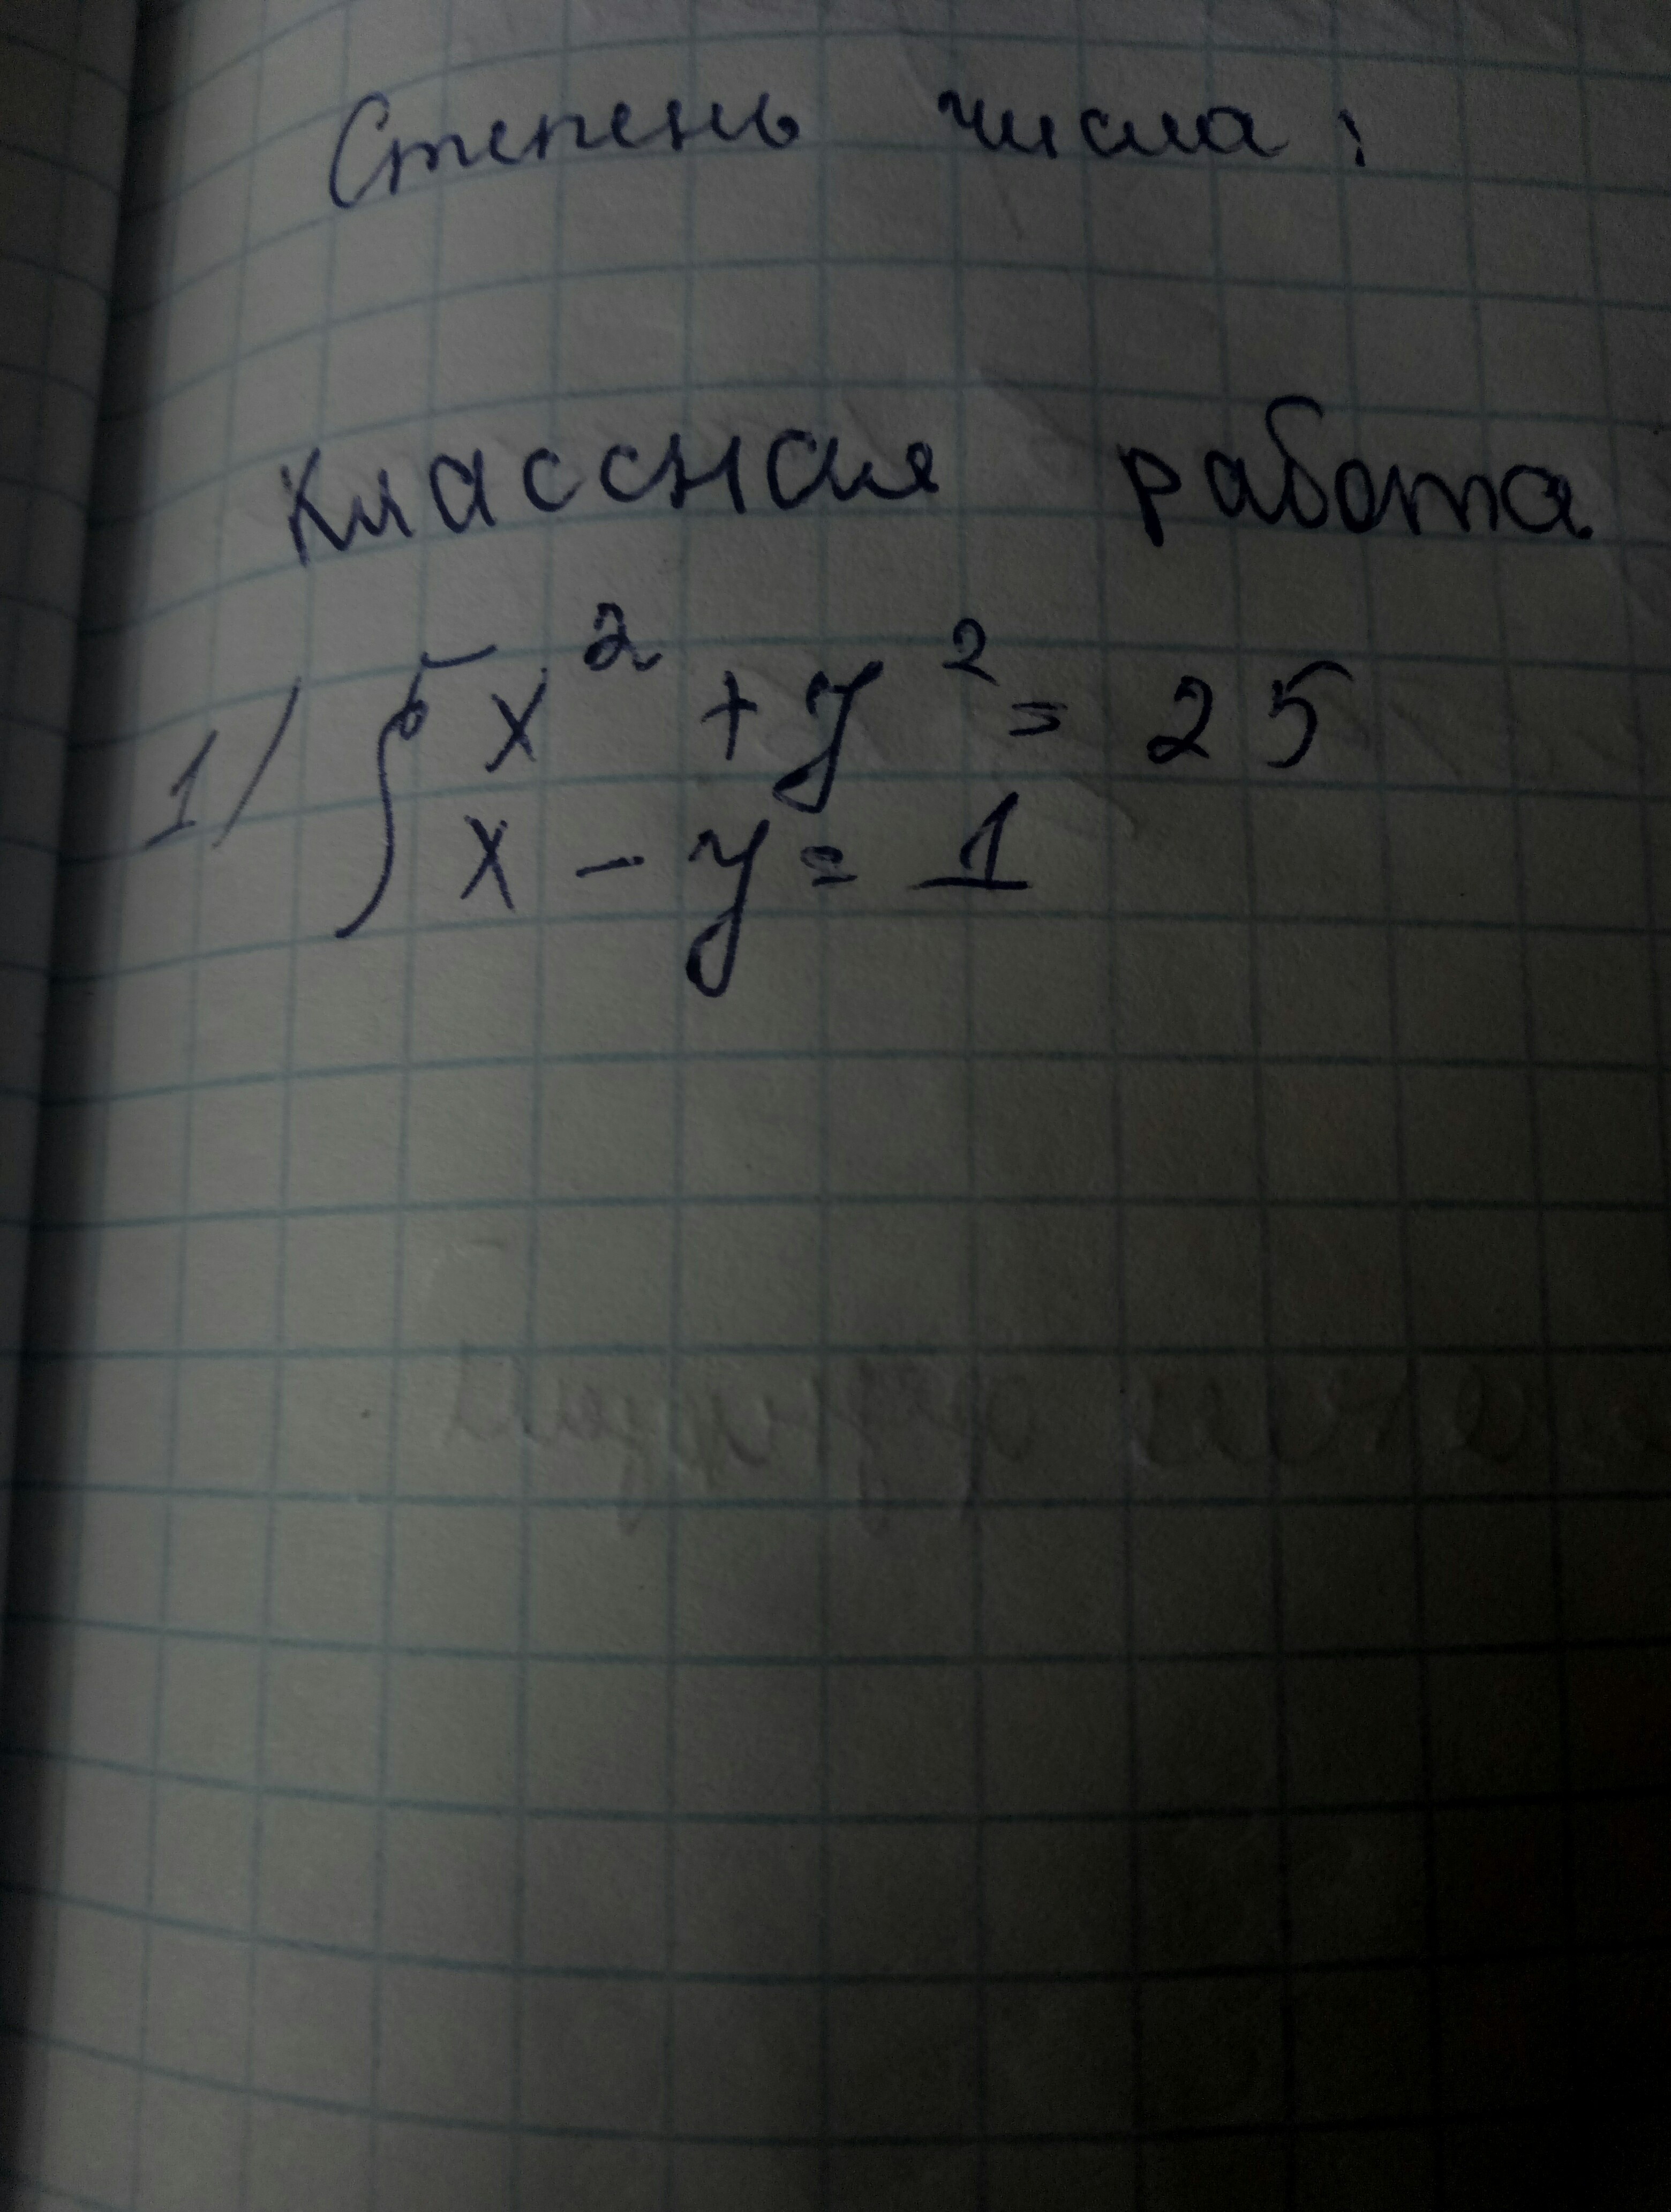 Степень числа:
Классная работа
1) { x² + y² = 25
x - y = 1